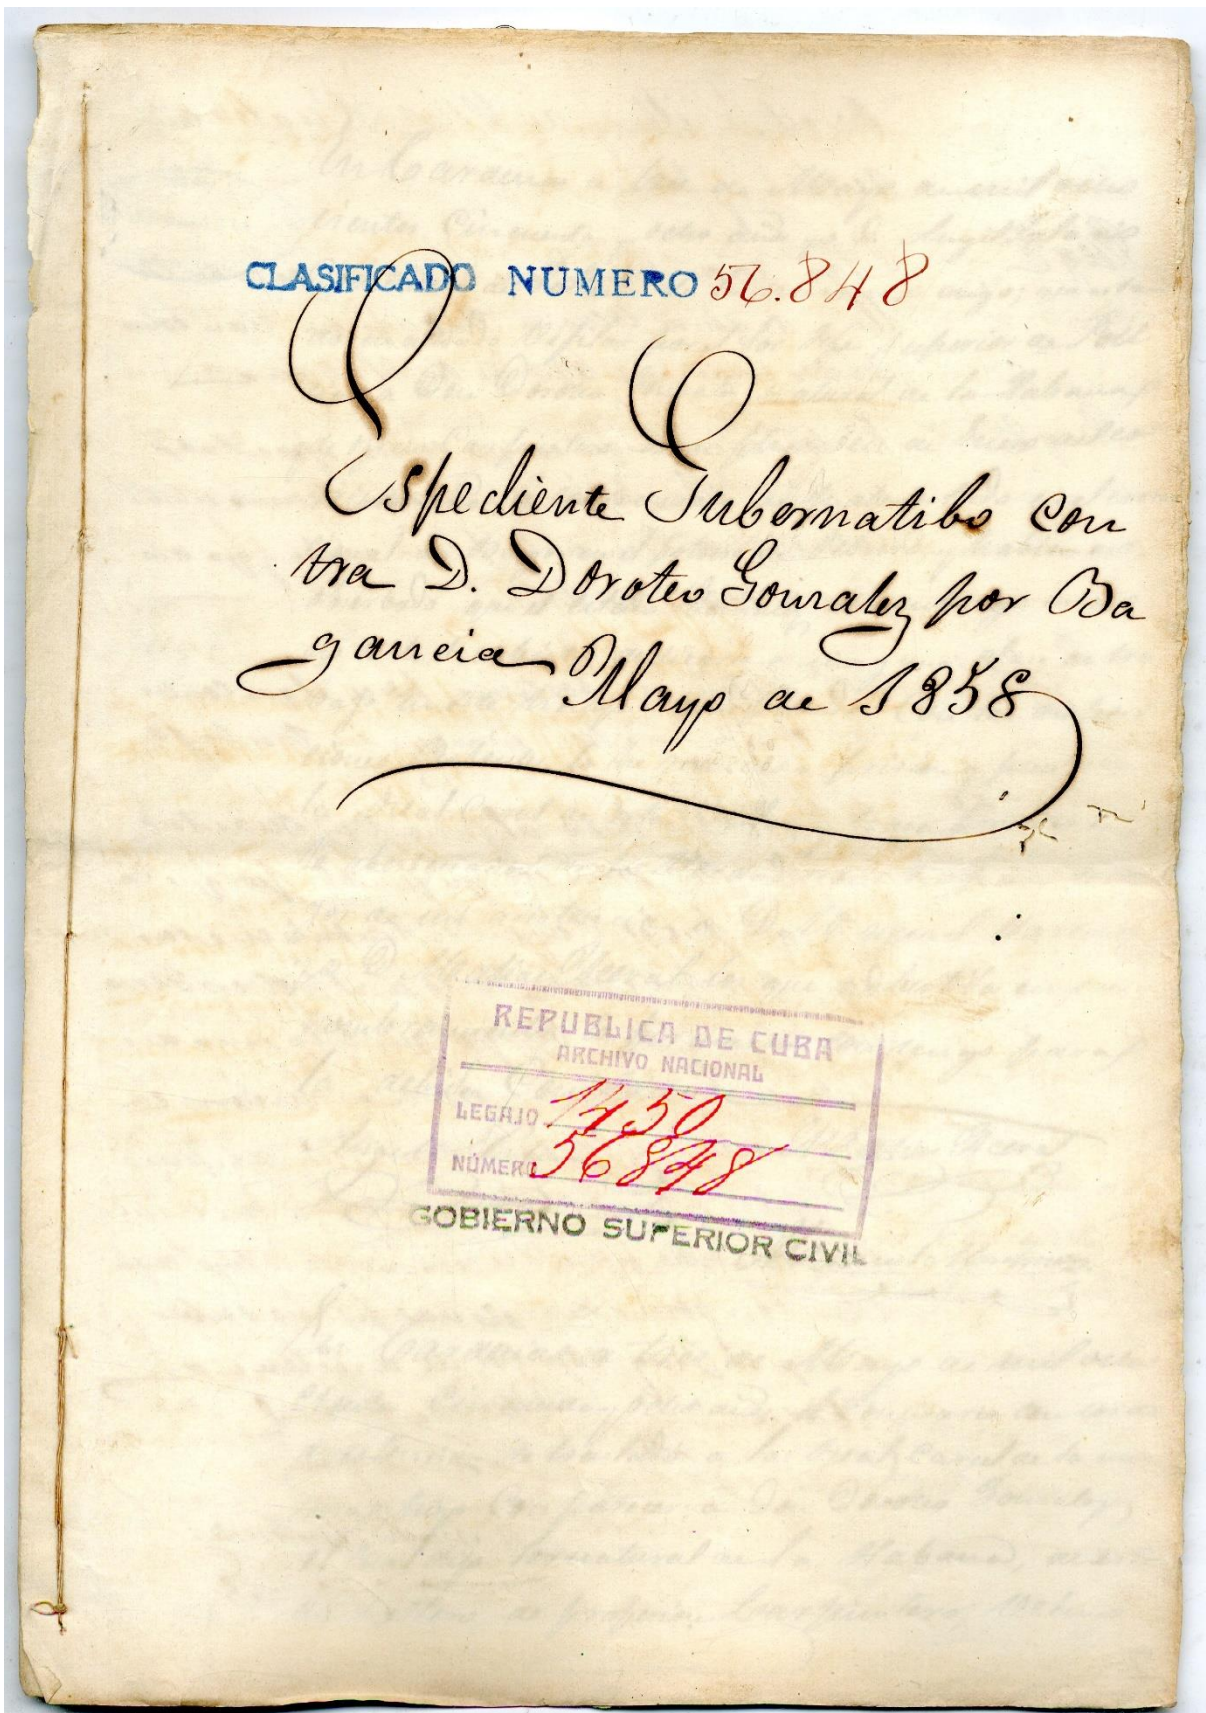 CLASIFICADO NUMERO 56.848
Espediente Gubernatibo con
tra D. Doroteo Gonzalez por Ba
gancia
Mayo de 1858
REPUBLICA DE CUBA
ARCHIVO NACIONAL
LEGAJO 1450
NÚMERO 56848
GOBIERNO SUPERIOR CIVIL